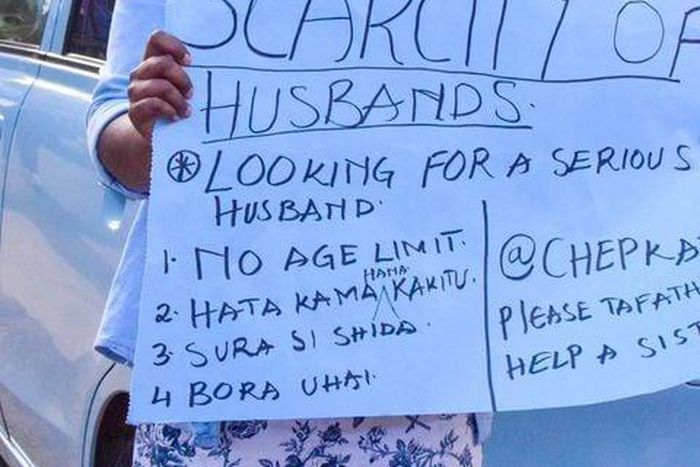 SCARCITY OF
HUSBANDS.
* LOOKING FOR A SERIOUS
HUSBAND.
1. NO AGE LIMIT.
2. HATA KAMA HANA KAKITU.
3. SURA SI SHIDA.
4 BORA UHAI.
@CHEPKA
PLEASE TAFATH
HELP A SIST